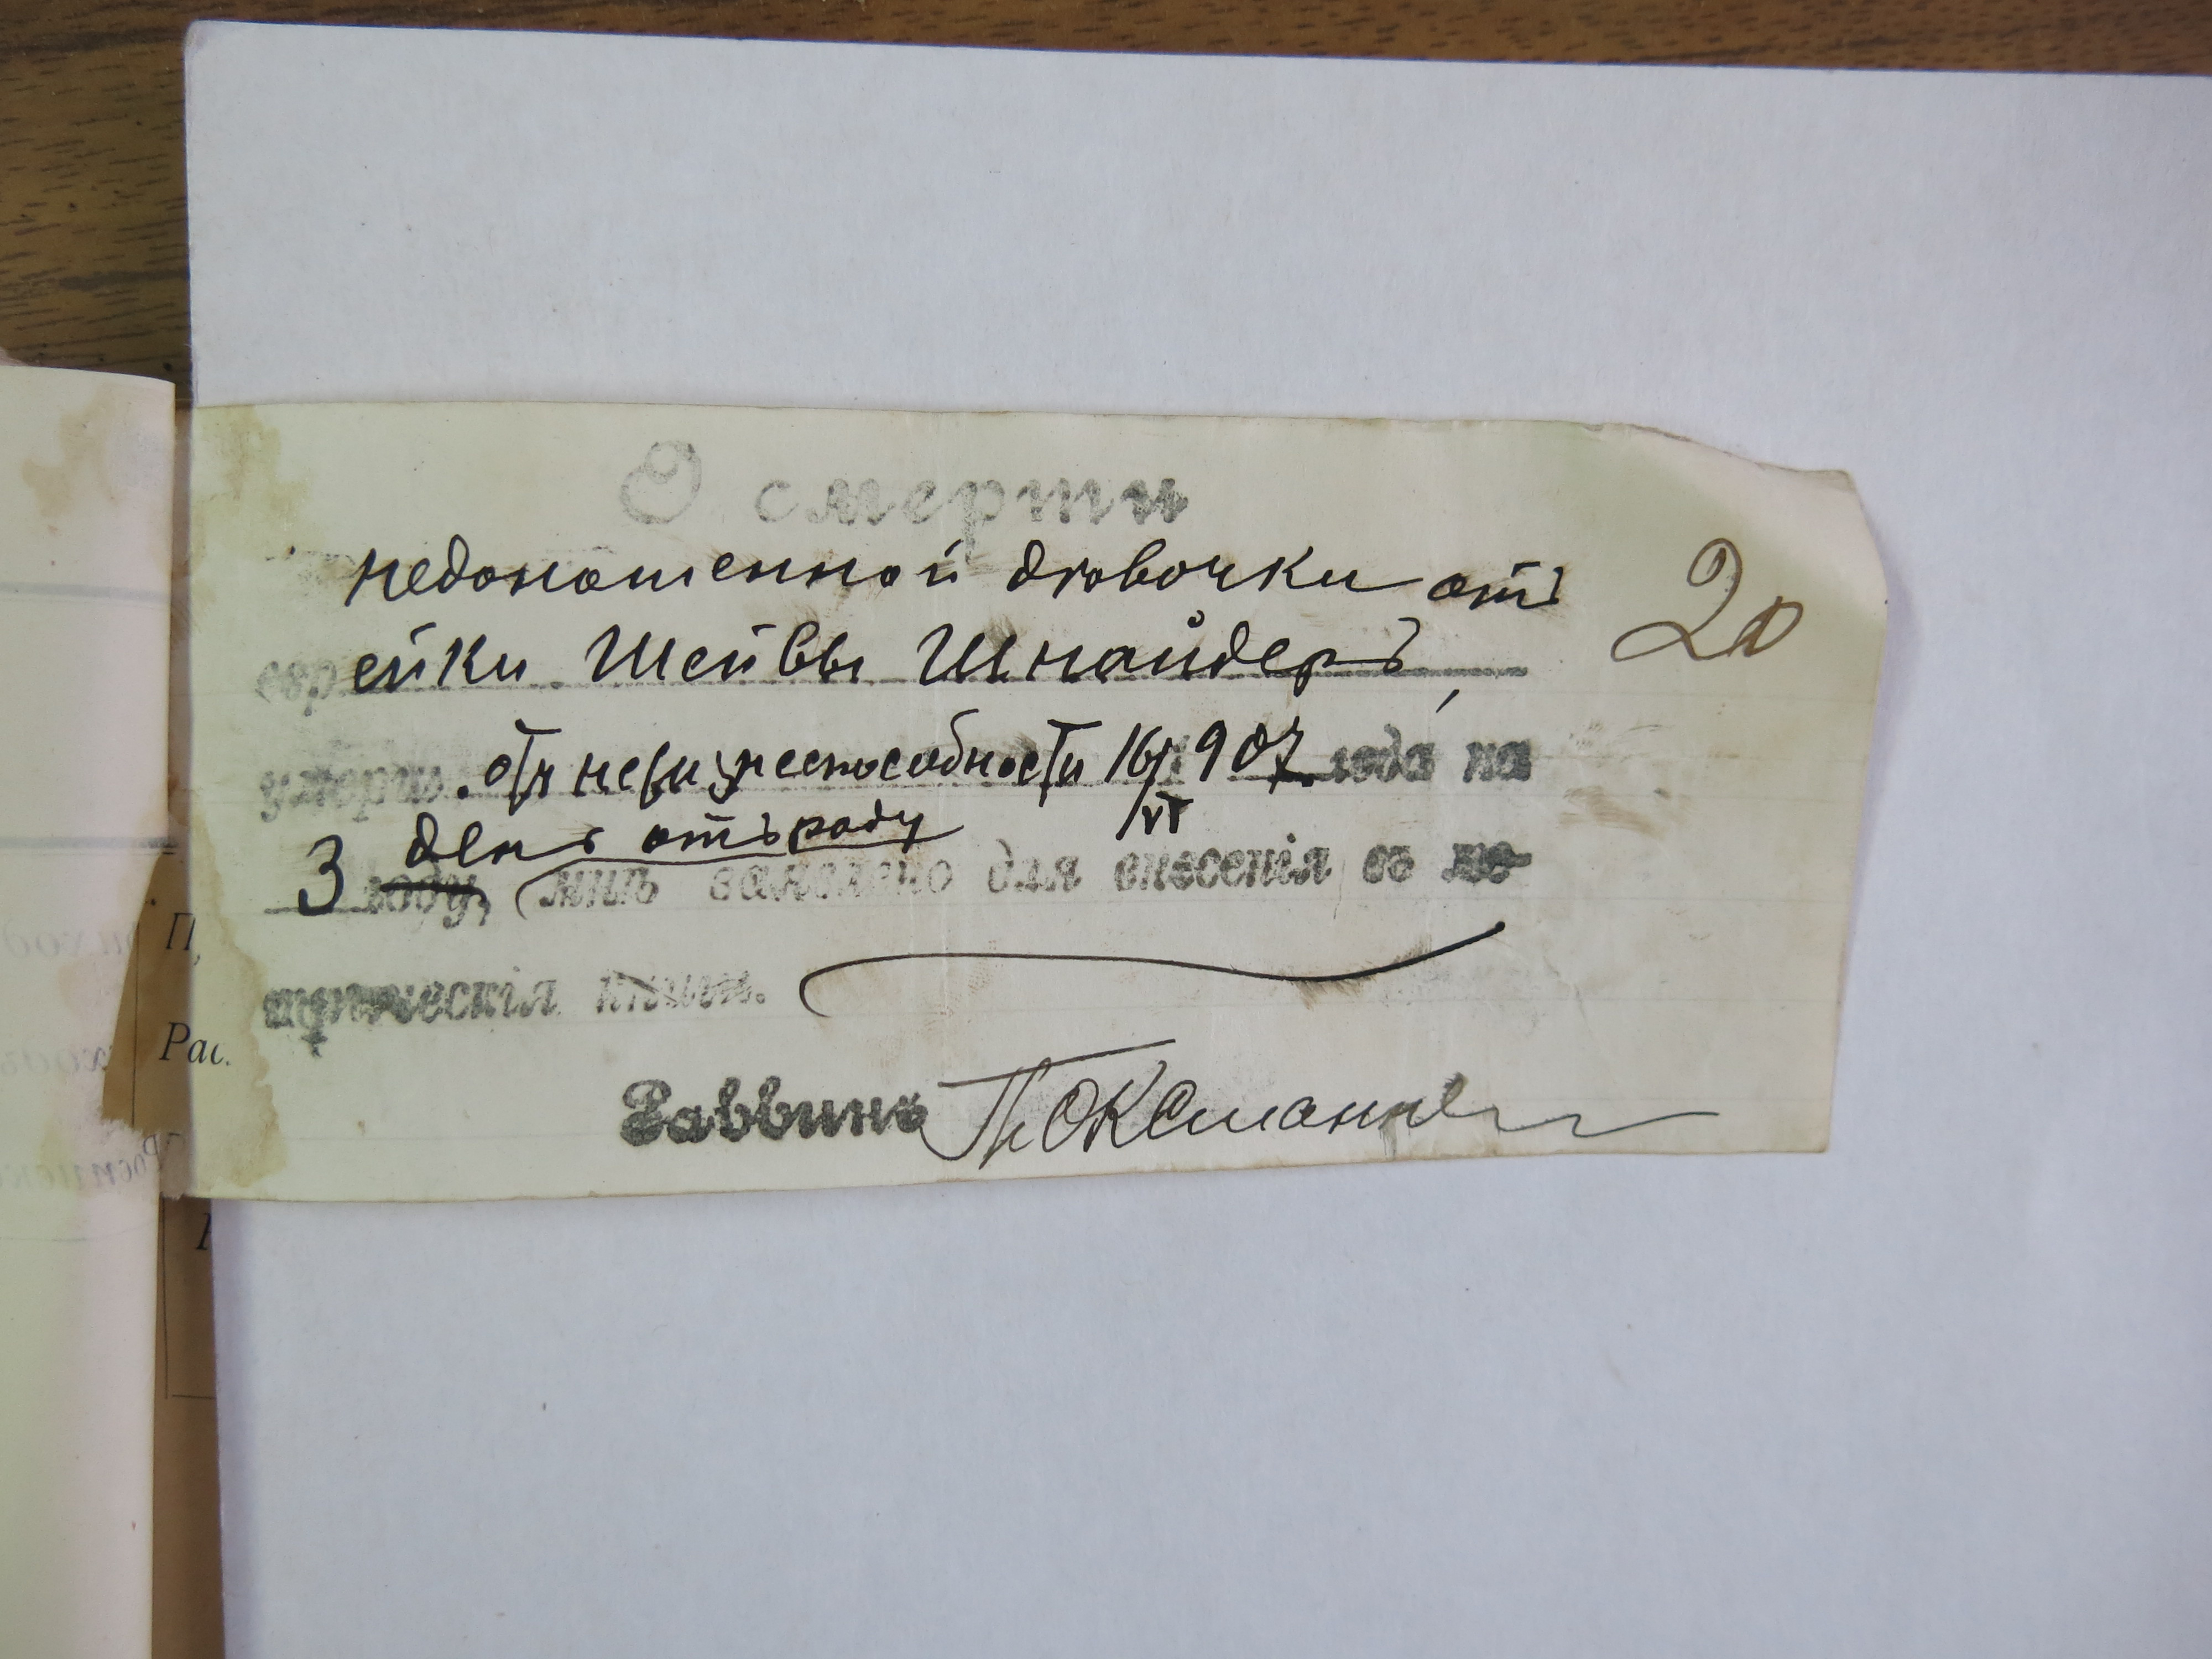 О смерти
недоношенной дѣвочки отъ
20
еврейки Шейвы Шнайдеръ,
умерш. отъ нежизнеспособности 16/VI 907. года на
3 день отъ роду
году, мнѣ заявлено для внесенія въ ме-
трическія книги.
Раввинъ
П,
Рас.